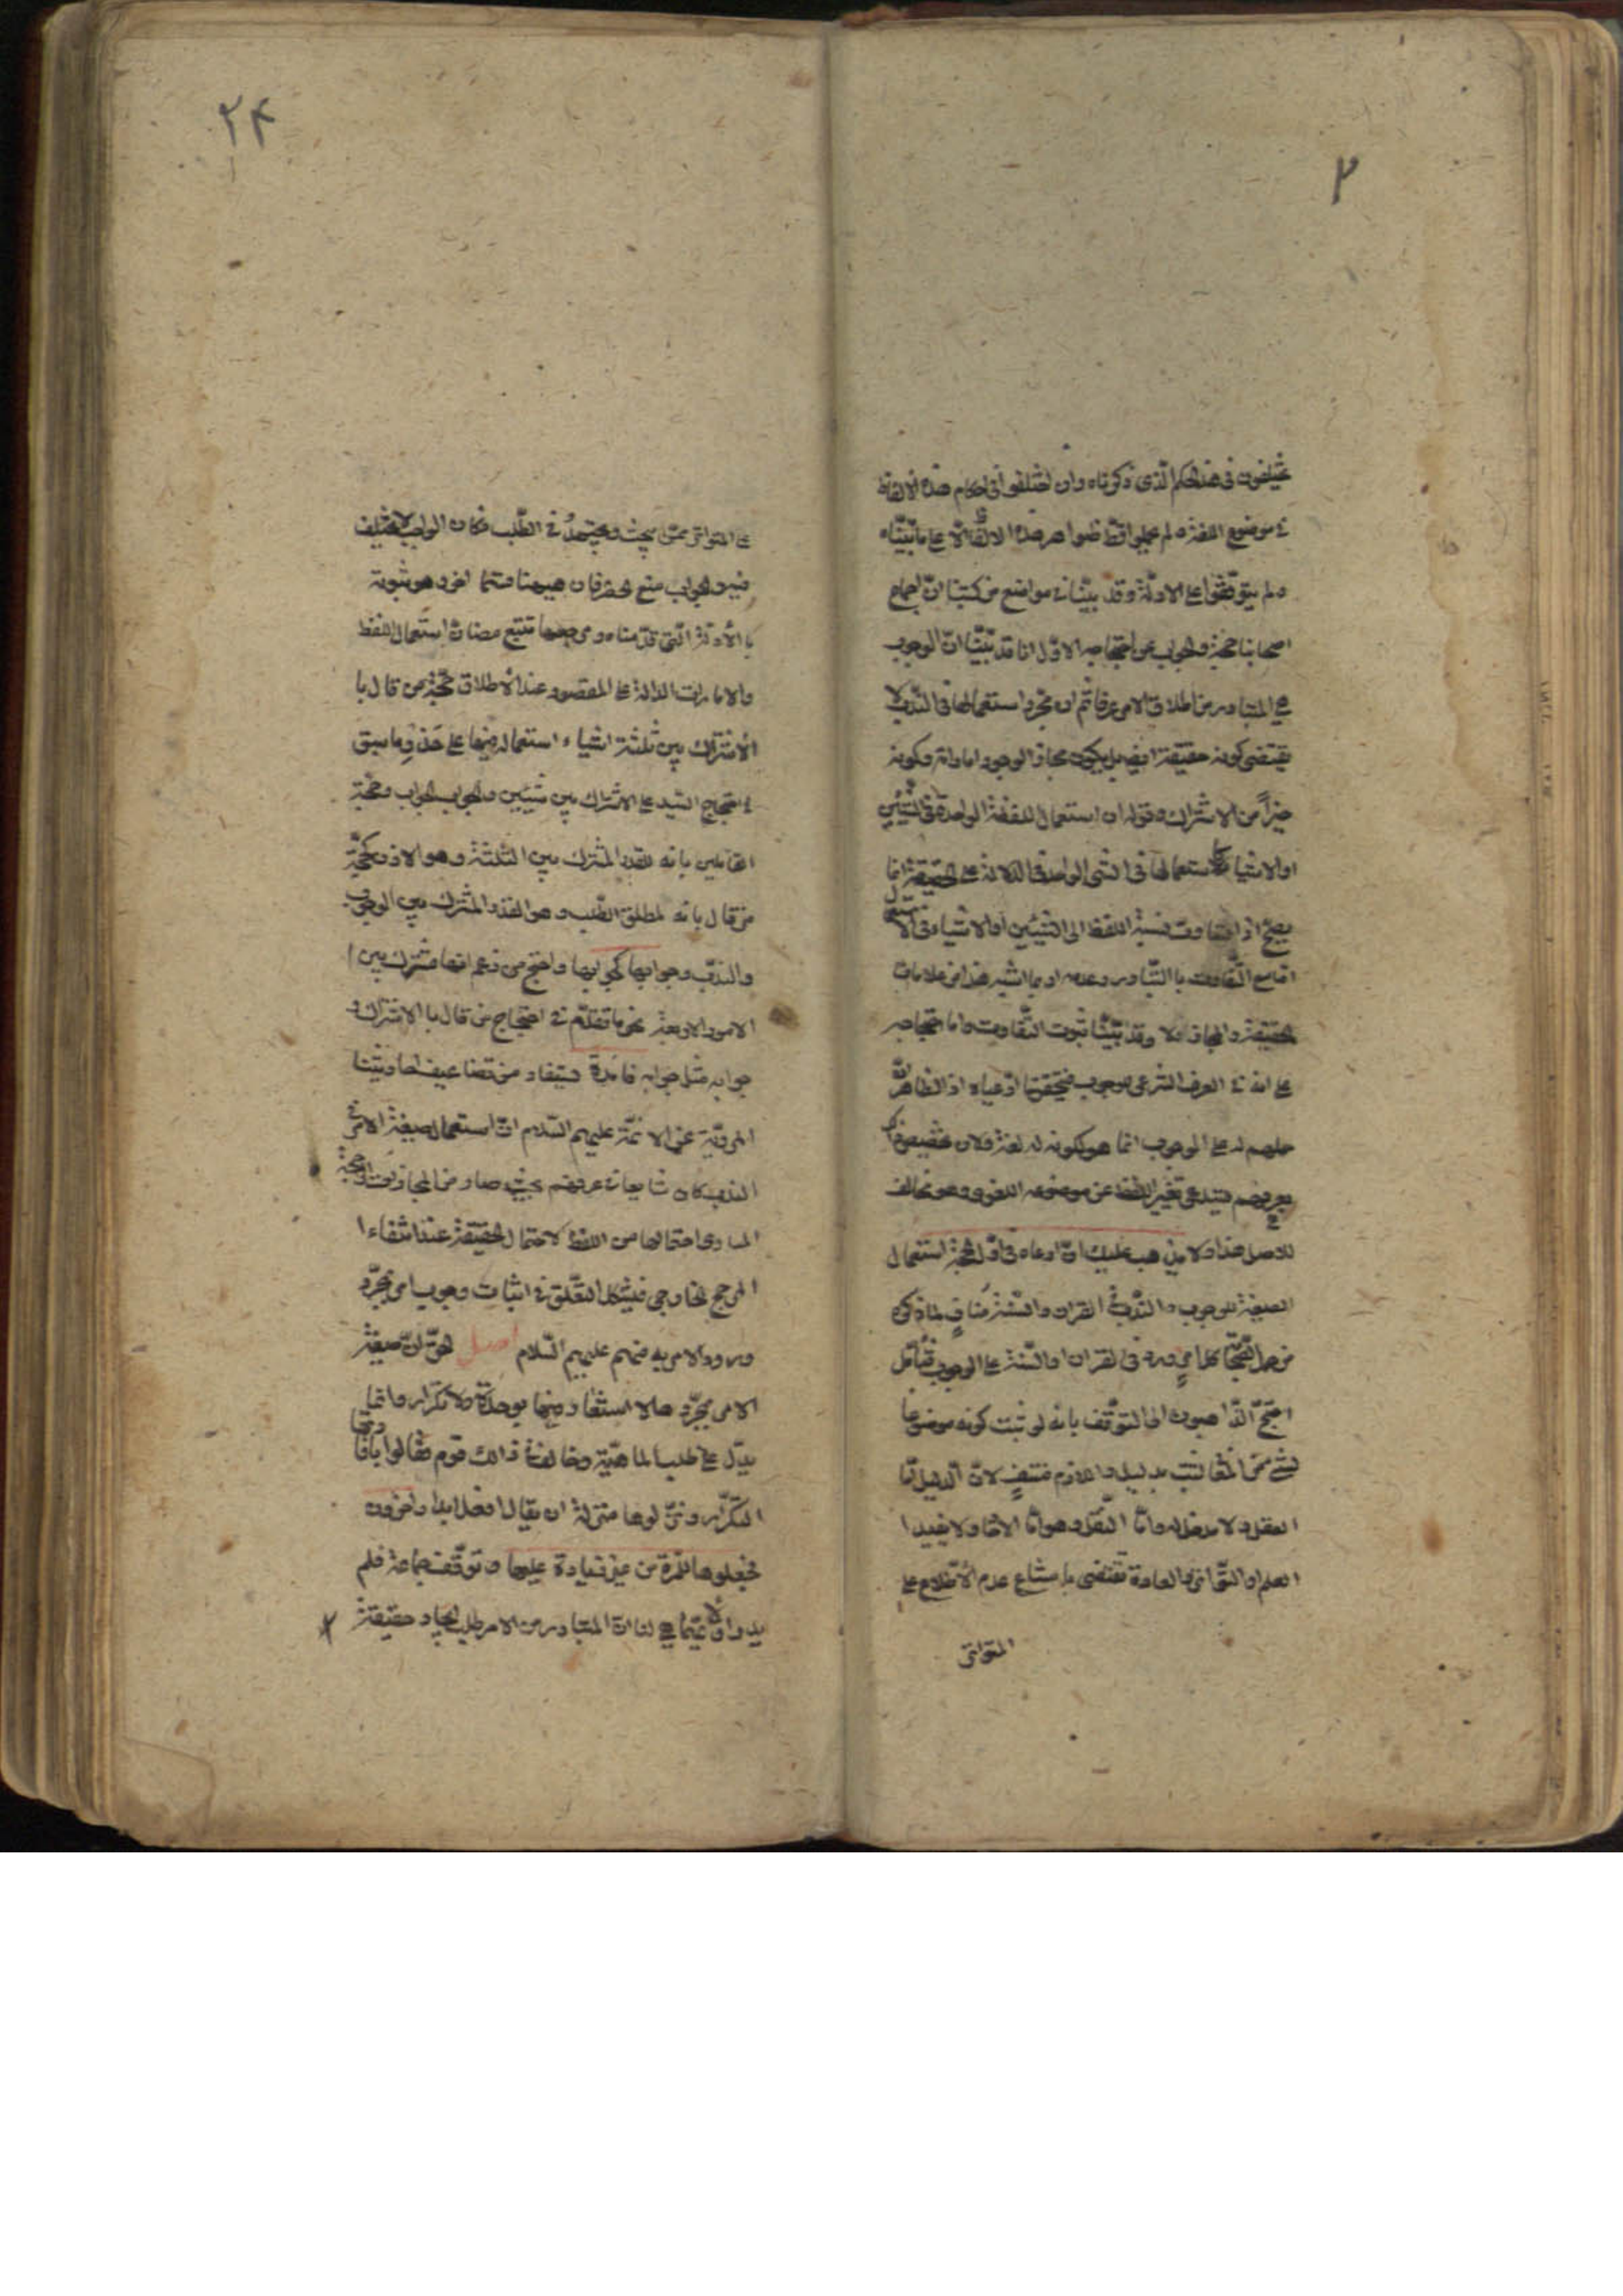 ٢
يختلفون في هذا الحكم الذي ذكرناه وان اختلفوا في احكام هذه الالفاظ
في موضوع اللغة ولم يحملوا قط ظواهر هذه الالفاظ الا على ما بيّناه
ولم يتوقفوا على الادلة وقد بيّنا في مواضع من كتبنا انّ اجماع
اصحابنا حجة والجواب عن احتجاجه الاوّل انا قد بيّنا انّ الوجوب
هو المتبادر من اطلاق الامر عرفا ثم ان مجرّد استعمالها في الندب لا
يقتضي كونه حقيقة ايضا بل يكون مجازا لوجود اماراته وكونه
خيراً من الاشتراك وقوله ان استعمال اللفظة الواحدة في الشيئين
او الاشياء كاستعمالها في الشئ الواحد في الدلالة على الحقيقة انما
يصح اذا تساوت نسبة اللفظ الى الشيئين او الاشياء في الاستعمال
اما مع التفاوت بالتبادر وعدمه او بما اشبه هذا من علامات
الحقيقة والمجاز فلا وقد بيّنا ثبوت التفاوت واما احتجاجه
على انه في العرف الشرعي للوجوب فيحقق ما ادعيناه اذ الظاهر انّ
حملهم له على الوجوب انما هو لكونه له لغة ولان تخصيص ذلك
بعرفهم يستدعي تغيير اللفظ عن موضوعه اللغوي وهو مخالف
للاصل هذا ولا يذهب عليك انّ ما ادعاه في اوّل الحجة استعمال
الصيغة للوجوب والندب في القران والسنة مناف لما ذكره
من حمل الصحابة كل امر ورد في القران او السنة على الوجوب فتأمّل
احتجّ الذاهبون الى التوقف بانه لو ثبت كونه موضوعا
لشئ من المعاني لثبت بدليل واللازم منتفٍ لانّ الدليل امّا
العقل ولا مدخل له وامّا النقل وهو امّا الاحاد ولا يفيد
العلم او التواتر والعادة تقتضي بامتناع عدم الاطلاع على
المتواتر
٢۴
على المتواتر ممّن يبحث ويجتهد في الطلب فكان الواجب لا يختلف
فيه والجواب منع الحصر فان هيهنا قسما اخر وهو ثبوته
بالأدلة التي قدّمناه ومرجعها تتبع مضان استعمال اللفظ
والامارات الدالة على المقصود عند الأطلاق حجّة من قال با
الأشتراك بين ثلثة اشياء استعماله فيها على حذو ما سبق
في احتجاج السيد على الاشتراك بين شيئين والجواب الجواب وحجّة
القائلين بانه للقدر المشترك بين الثلثة وهو الاذن كحجّة
من قال بانه لمطلق الطلب وهو القدر المشترك بين الوجوب
والندب وجوابها كجوابها واحتج من زعم انها مشترك بين ا
الامور الاربعة بنحو ما تقدّم في احتجاج من قال بالاشتراك و
جوابه مثل جوابه فائدة يستفاد من تضاعيف احاديثنا
المرويّة عن الائمّة عليهم السّلام انّ استعمال صيغة الامر في
الندب كان شايعا في عرفهم بحيث صار من المجازات الراجحة
المساوي احتمالها من اللفظ لاحتمال الحقيقة عند انتفاء ا
المرجح الخارجي فيشكل التعلّق في اثبات وجوب امر بمجرّد
ورود الامر به منهم عليهم السّلام اصل الحقّ انّ صيغة
الامر بمجرّدها لا اشعار فيها بوحدة ولا تكرار وانما
يدلّ على طلب الماهيّة وخالف في ذلك قوم فقالوا بافادتها
التكرار ونزّلوها منزلة ان يقال افعل ابدا واخرون
فجعلوها للمرة من غير زيادة عليها وتوقف جماعة فلم
يدروا لايّهما هي لنا انّ المتبادر من الامر طلب ايجاد حقيقة